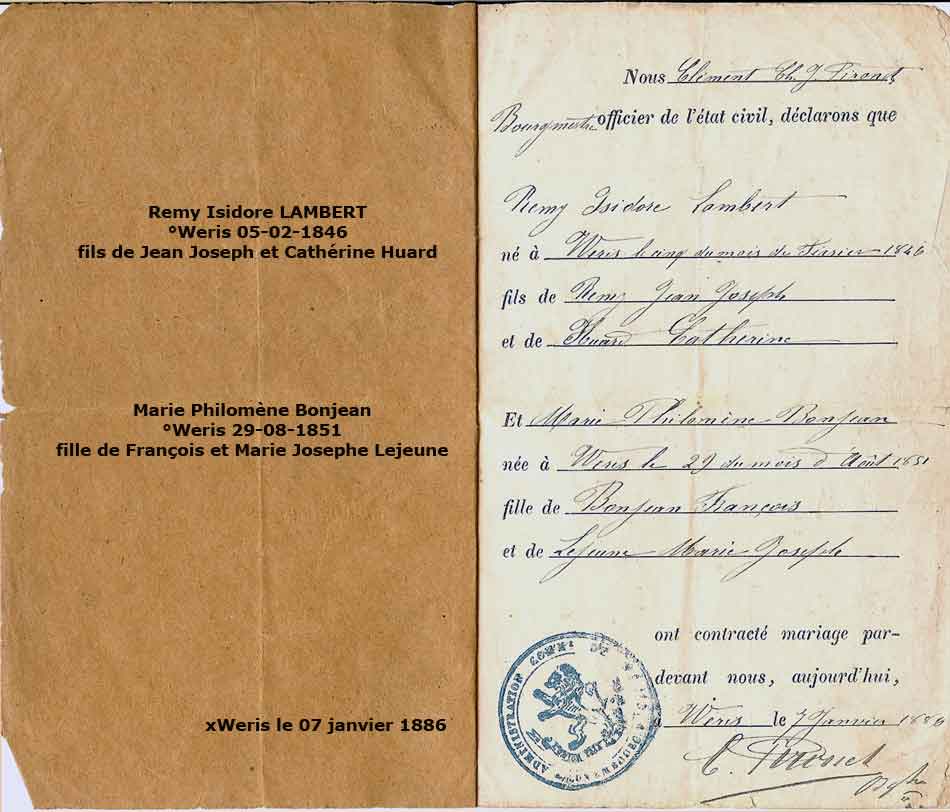 Remy Isidore LAMBERT
°Weris 05-02-1846
fils de Jean Joseph et Cathérine Huard
Marie Philomène Bonjean
°Weris 29-08-1851
fille de François et Marie Josephe Lejeune
xWeris le 07 janvier 1886
Nous Clément Ch. J. Pironet
Bourgmestre officier de l'état civil, déclarons que
Remy Isidore Lambert
né à Weris le cinq du mois de Février 1846
fils de Remy Jean Joseph
et de Huard Catherine
Et Marie Philomène Bonjean
née à Weris le 29 du mois d'Août 1851
fille de Bonjean François
et de Lejeune Marie Joseph
ont contracté mariage par-
devant nous, aujourd'hui,
à Weris le 7 Janvier 1886
C. Pironet
ADMINISTRATION COMM